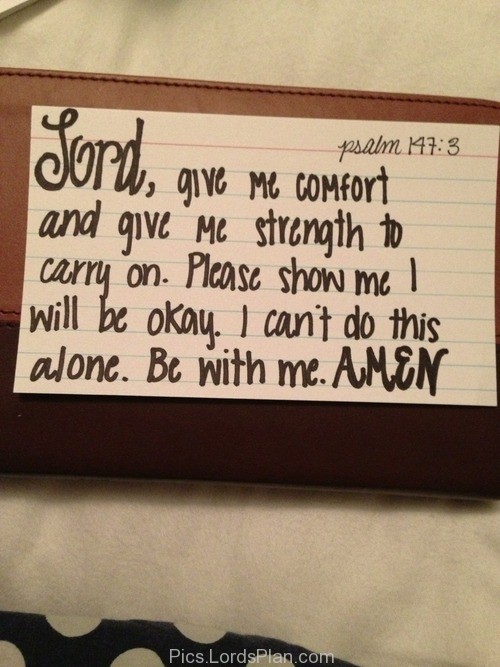 psalm 147:3
Lord, give me comfort
and give me strength to
carry on. Please show me I
will be okay. I can't do this
alone. Be with me. AMEN
Pics.LordsPlan.com